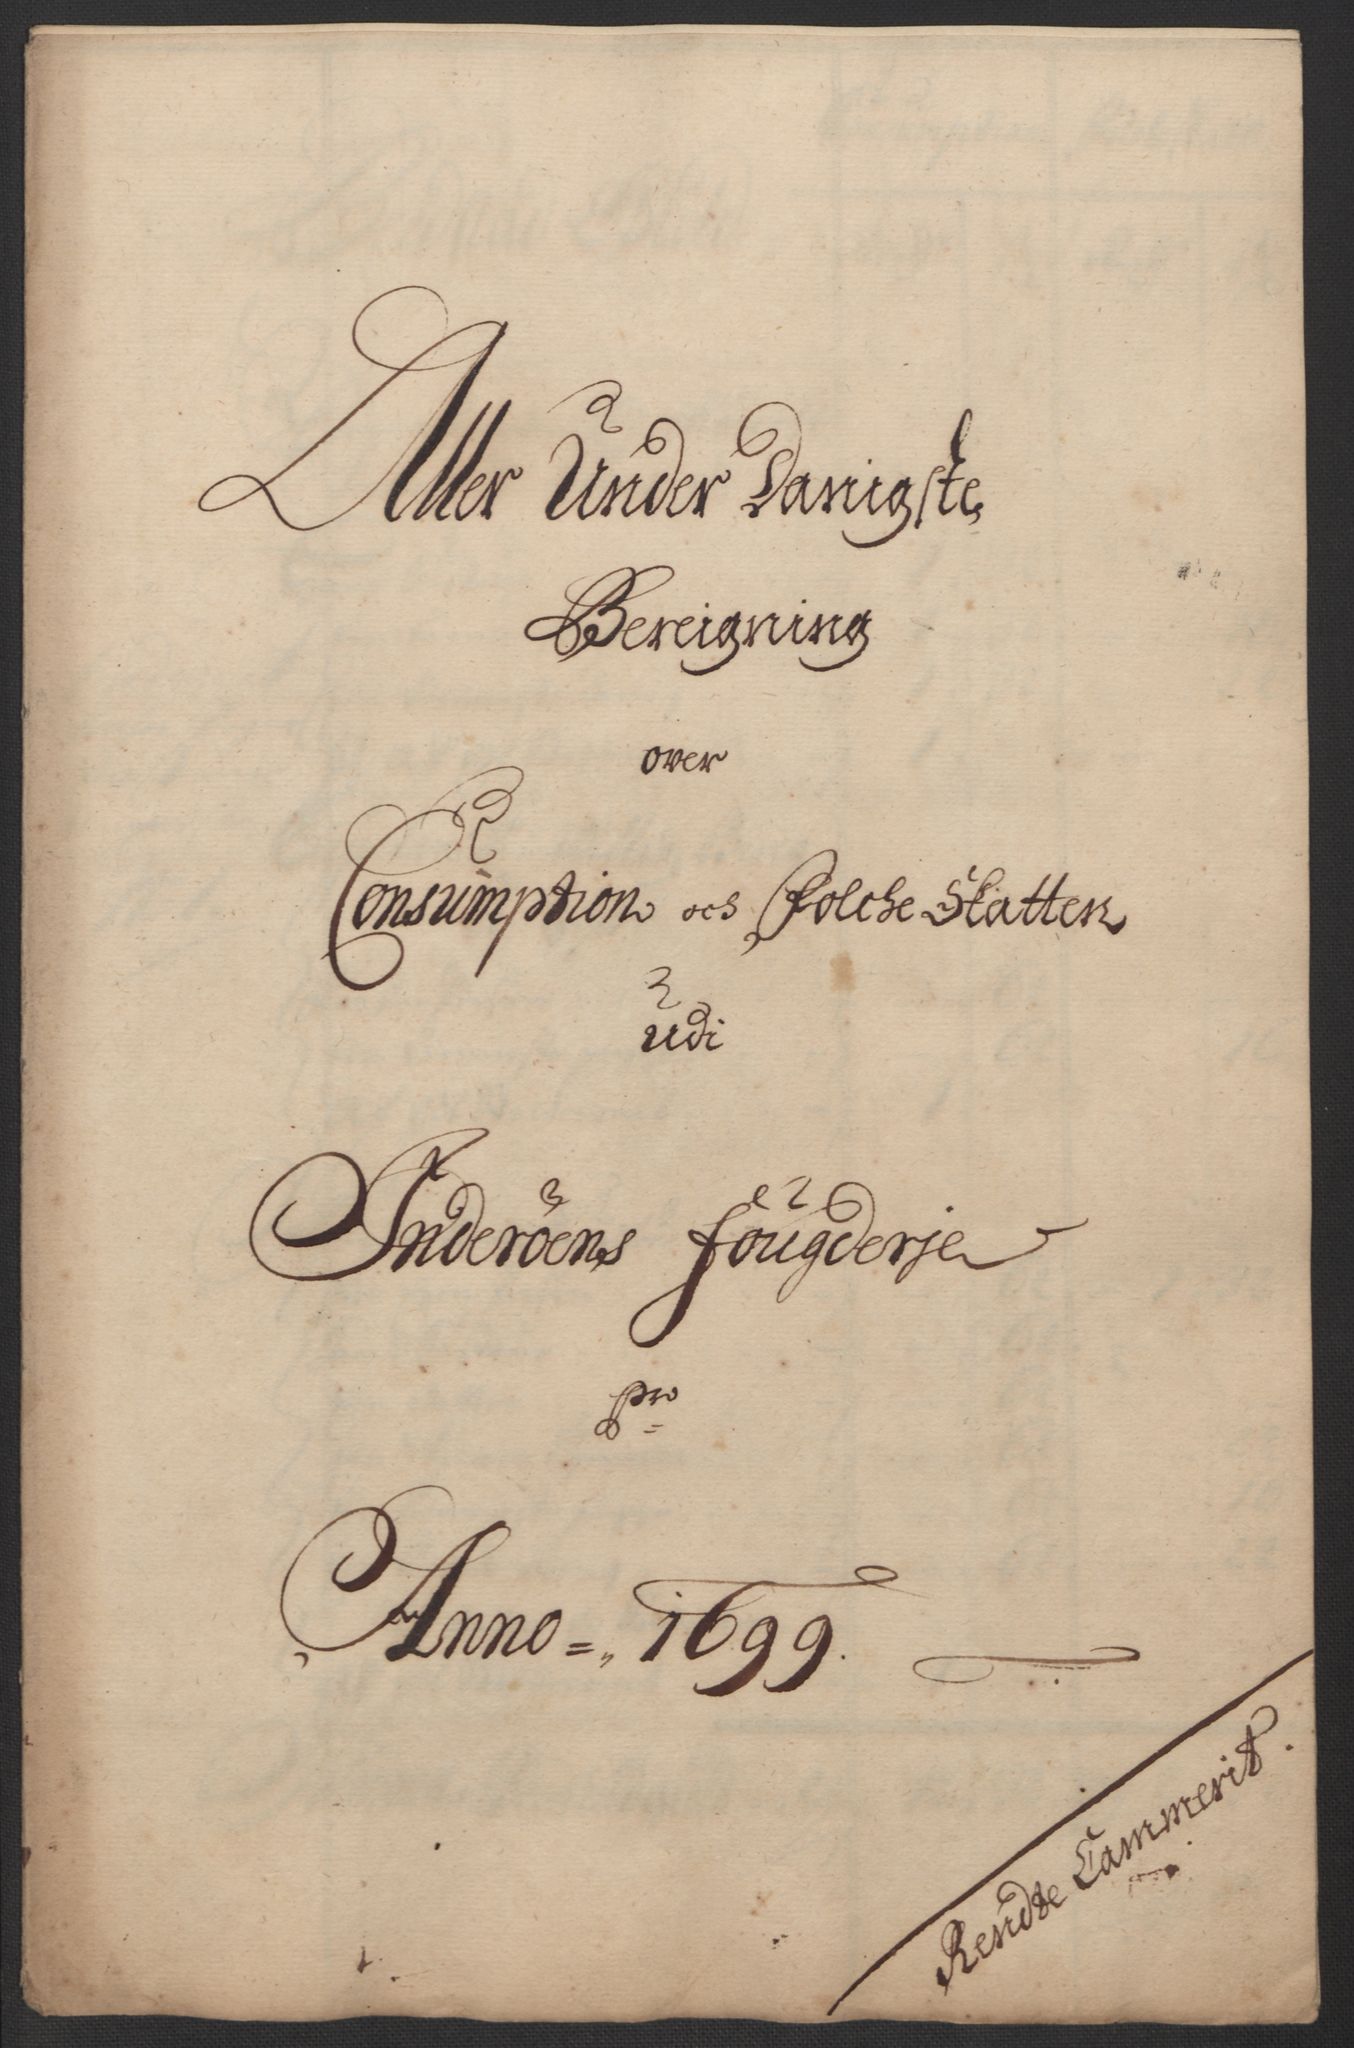 Aller Under Danigste
Bereigning
over
Consumption och Folche Skatten
udi
Inderöens fougderje
pro
Anno = 1699.
Rendte Cammerit.